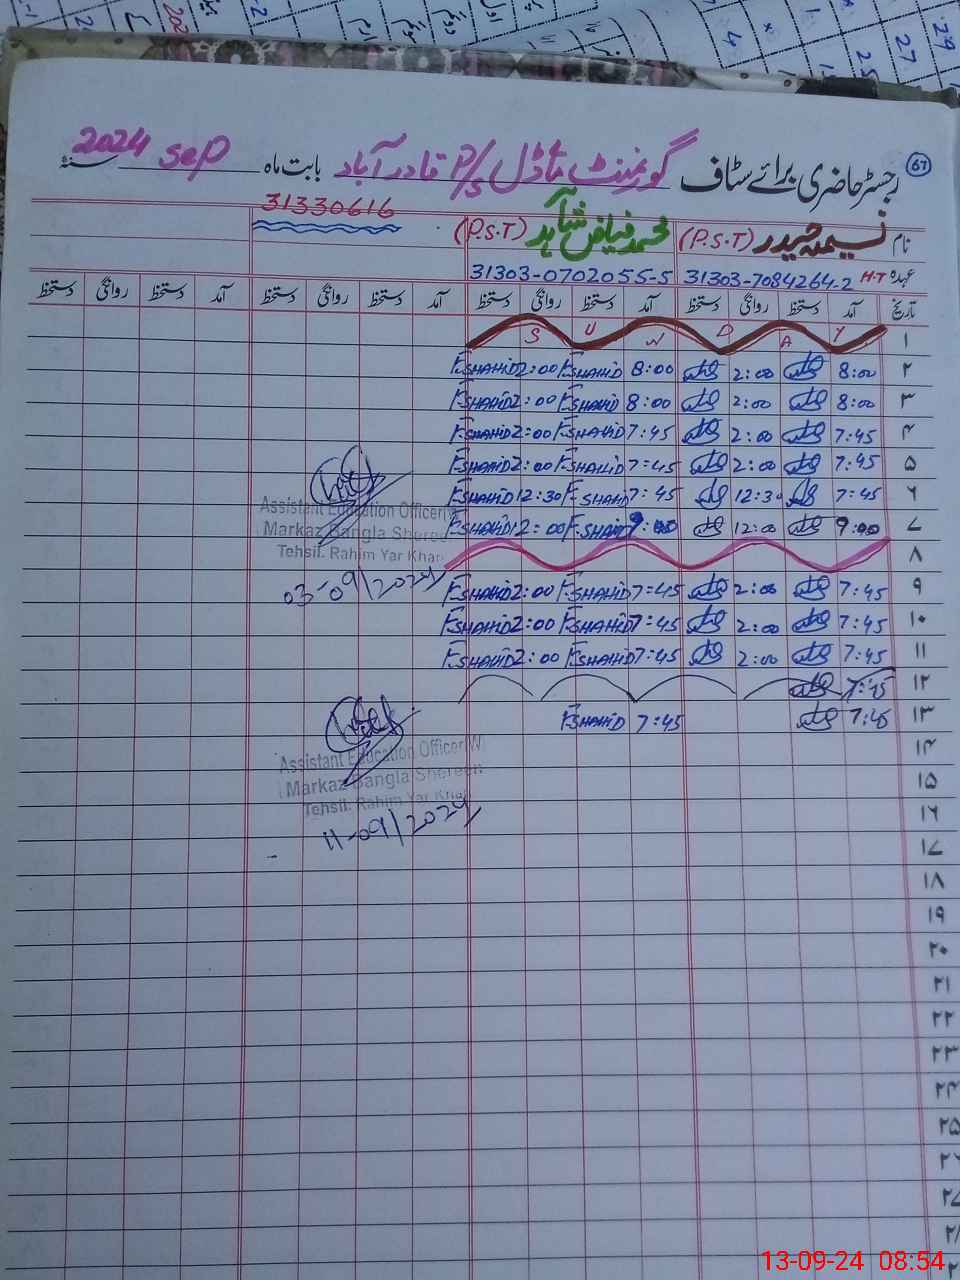 67
رجسٹر حاضری برائے سٹاف گورنمنٹ ماڈل P/S قادر آباد بابت ماہ sep 2024 سنۃ
31330616
نام نسیم حیدر (P.S.T) محمد فیاض شاہد (P.S.T)
عہدہ H.T 31303-7084264-2 31303-0702055-5
تاریخ آمد دستخط روانگی دستخط آمد دستخط روانگی دستخط آمد دستخط روانگی دستخط آمد دستخط روانگی دستخط
۱ S U N D A Y
۲ 8:00 2:00 8:00 F.SHAHID 2:00 F.SHAHID
۳ 8:00 2:00 8:00 F.SHAHID 2:00 F.SHAHID
۴ 7:45 2:00 7:45 F.SHAHID 2:00 F.SHAHID
۵ 7:45 2:00 7:45 F.SHAHID 2:00 F.SHAHID
۶ 7:45 12:30 7:45 F.SHAHID 12:30 F.SHAHID
۷ 9:00 12:00 9:00 F.SHAHID 12:00 F.SHAHID
۸
۹ 7:45 2:00 7:45 F.SHAHID 2:00 F.SHAHID
۱۰ 7:45 2:00 7:45 F.SHAHID 2:00 F.SHAHID
۱۱ 7:45 2:00 7:45 F.SHAHID 2:00 F.SHAHID
۱۲ 7:45
۱۳ 7:45 7:45 F.SHAHID
۱۴
۱۵
۱۶
۱۷
۱۸
۱۹
۲۰
۲۱
۲۲
۲۳
۲۴
۲۵
۲۶
۲۷
Assistant Education Officer(W)
Markaz Bangla Shereen
Tehsil. Rahim Yar Khan
03-09/2024
Assistant Education Officer(W)
Markaz Bangla Shereen
Tehsil. Rahim Yar Khan
11-09/2024
13-09-24 08:54